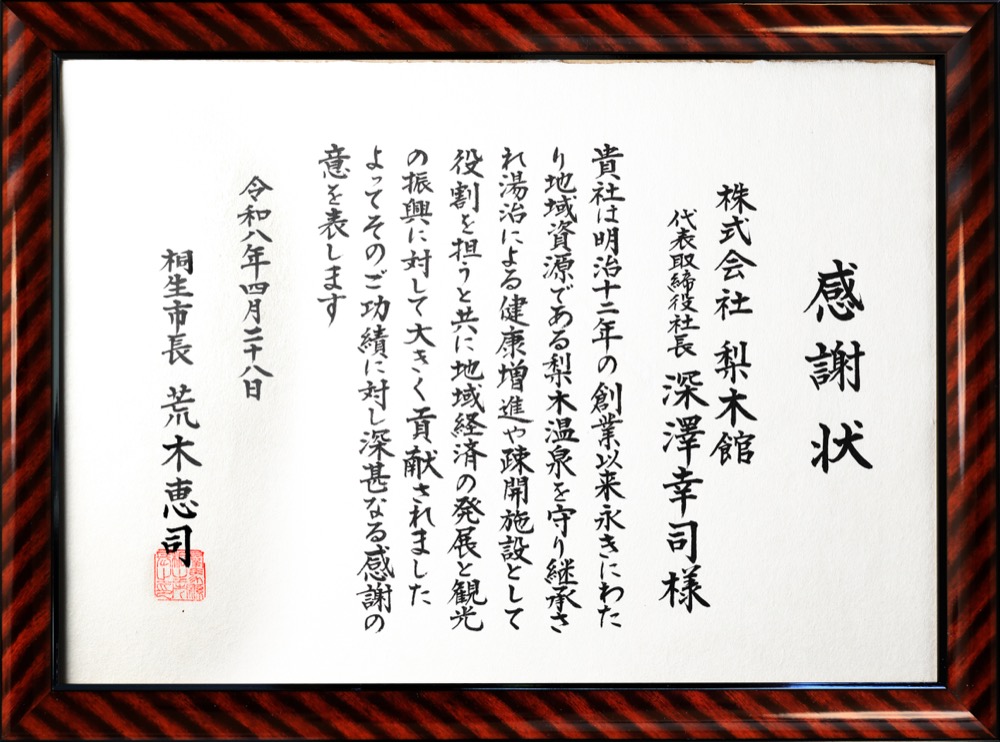 感謝状
株式会社 梨木館
代表取締役社長 深澤幸司様
貴社は明治十二年の創業以来永きにわた
り地域資源である梨木温泉を守り継承さ
れ湯治による健康増進や疎開施設として
役割を担うと共に地域経済の発展と観光
の振興に対して大きく貢献されました
よってそのご功績に対し深甚なる感謝の
意を表します
令和八年四月二十八日
桐生市長 荒木恵司